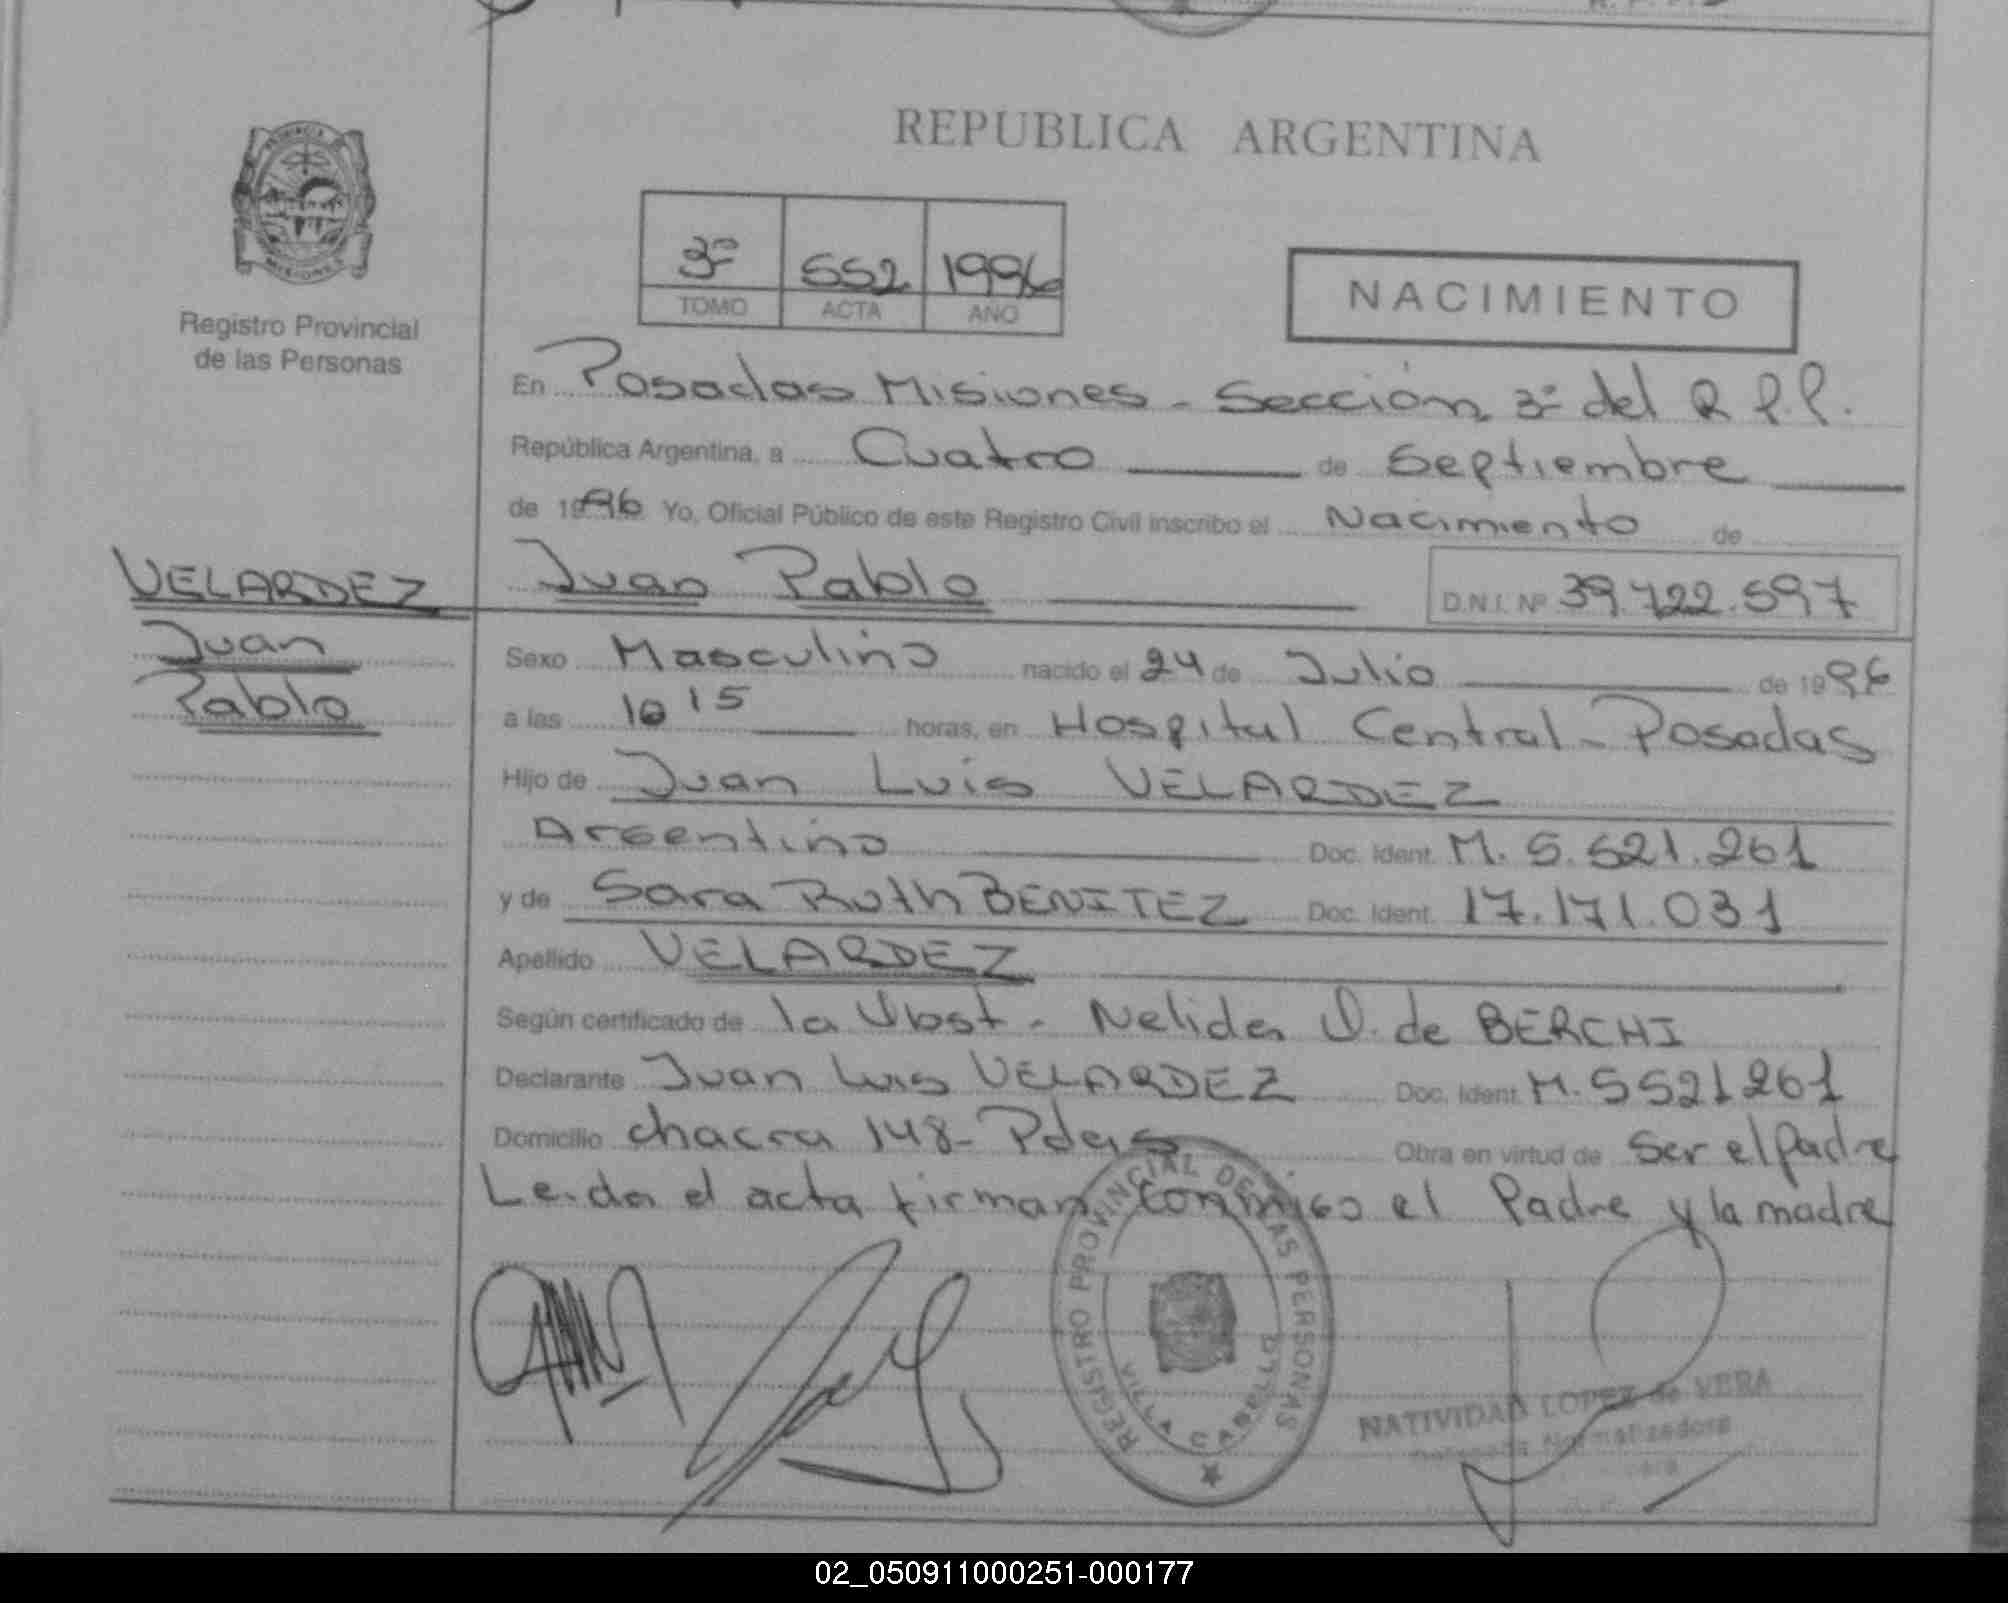 REPUBLICA ARGENTINA
3º 552 1996
TOMO ACTA AÑO
NACIMIENTO
Registro Provincial
de las Personas
En Posadas Misiones - Sección 3º del R.P.P.
República Argentina, a Cuatro de Septiembre
de 1996 Yo, Oficial Público de este Registro Civil inscribo el Nacimiento de
VELARDEZ Juan Pablo D.N.I. Nº 39.722.597
Juan
Pablo
Sexo Masculino nacido el 24 de Julio de 1996
a las 10 15 horas, en Hospital Central - Posadas
Hijo de Juan Luis VELARDEZ
Argentino Doc. Ident. M. 5.521.261
y de Sara Ruth BENITEZ Doc. Ident. 17.171.031
Apellido VELARDEZ
Según certificado de la Obst - Nelida O. de BERCHI
Declarante Juan Luis VELARDEZ Doc. Ident. M. 5521261
Domicilio chacra 148 - Pdas Obra en virtud de ser el padre
Leida el acta firman conmigo el Padre y la madre
REGISTRO PROVINCIAL DE LAS PERSONAS
VILLA CABELLO
NATIVIDAD LOPEZ de VERA
Normalizadora
02_050911000251-000177